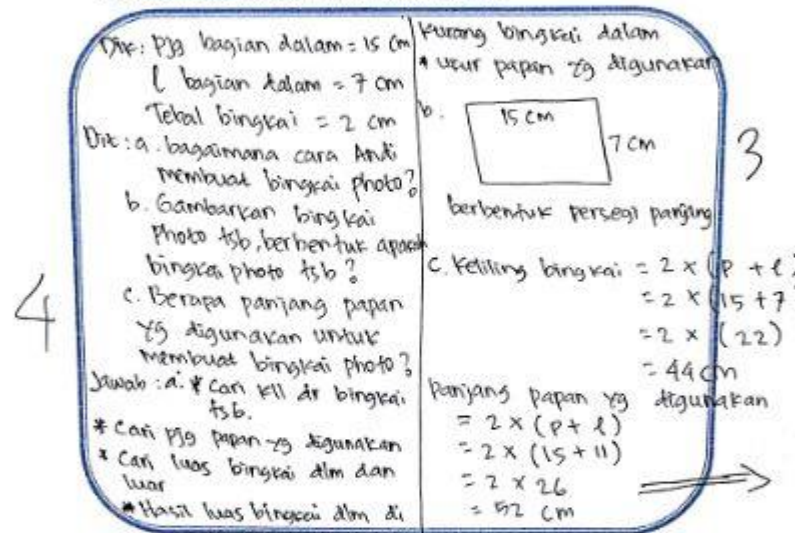 Dik : Pjg bagian dalam = 15 cm
l bagian dalam = 7 cm
Tebal bingkai = 2 cm
Dit : a. bagaimana cara Andi
membuat bingkai photo?
b. Gambarkan bingkai
photo tsb, berbentuk apakah
bingkai photo tsb?
c. Berapa panjang papan
yg digunakan untuk
membuat bingkai photo?
Jawab : a. * Cari kll dr bingkai
tsb.
* Cari pjg papan yg digunakan
* Cari luas bingkai dlm dan
luar
* Hasil luas bingkai dlm di
4
kurang bingkai dalam
* ukur papan yg digunakan
b.
15 cm
7 cm
3
berbentuk persegi panjang
c. Keliling bingkai = 2 × (p + l)
= 2 × (15 + 7)
= 2 × (22)
= 44 cm
Panjang papan yg digunakan
= 2 × (p + l)
= 2 × (15 + 11)
= 2 × 26
= 52 cm